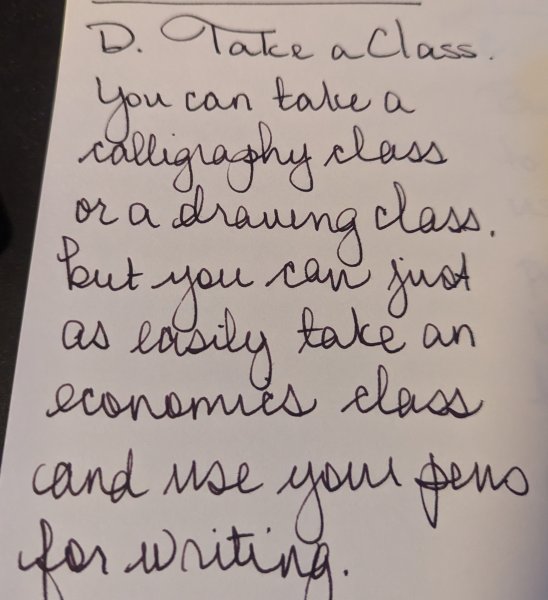 D. Take a Class.
You can take a
calligraphy class
or a drawing class.
but you can just
as easily take an
economics class
and use your pens
for writing.